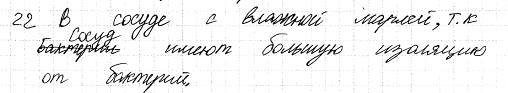 22 В сосуде с влажной марлей, т.к
Сосуд
бактерии имеют большую изоляцию
от бактерий.